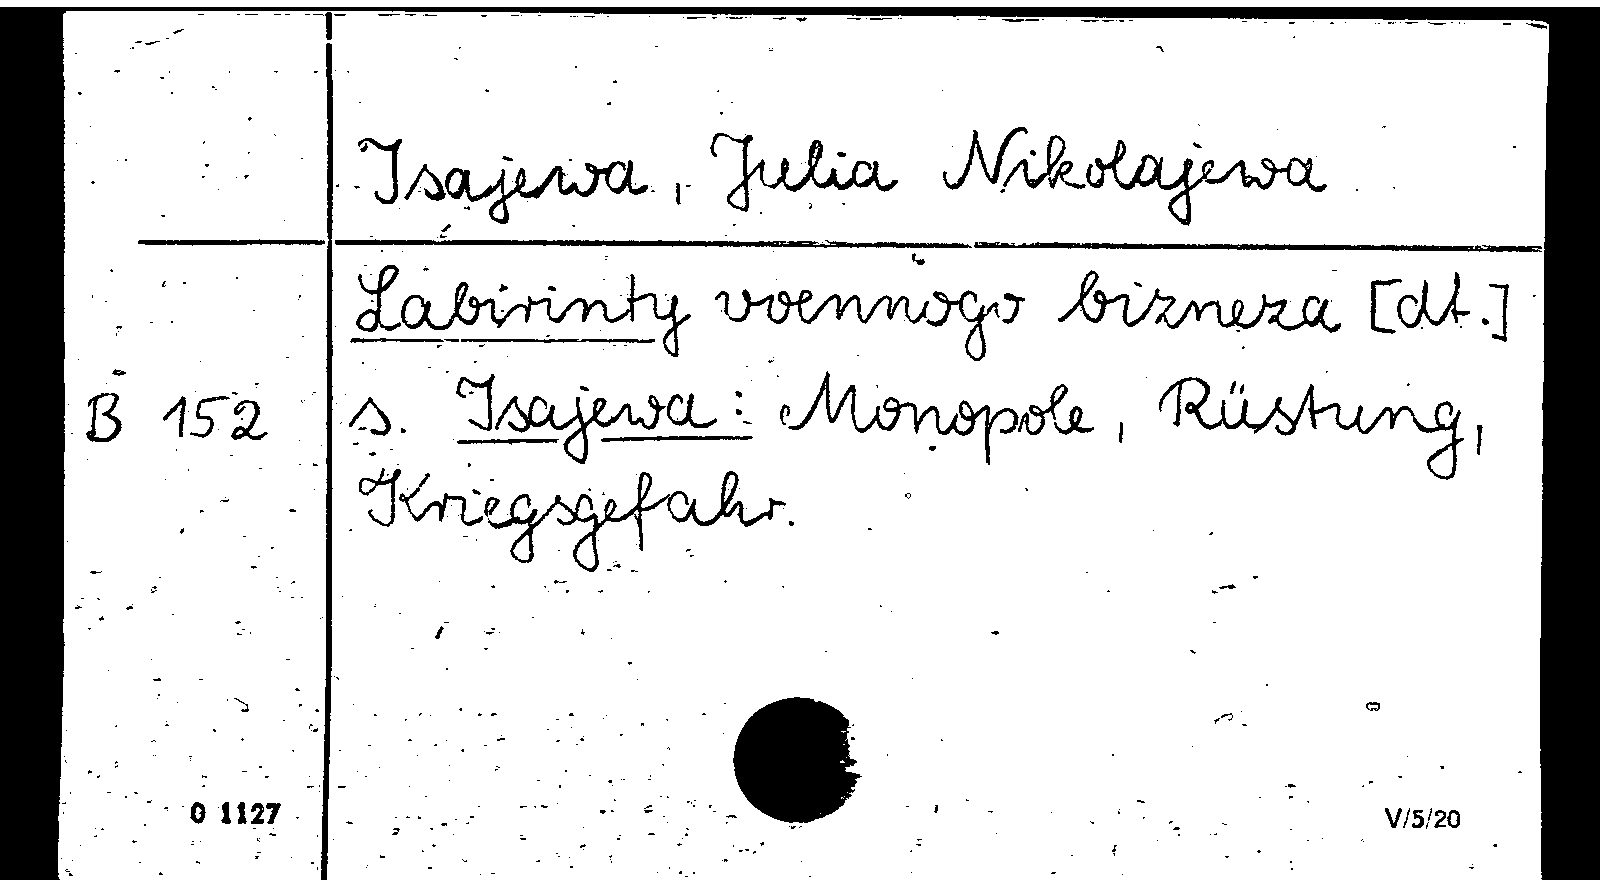 Isajewa, Julia Nikolajewa
Labirinty voennogo bizneza [dt.]
B 152 s. Isajewa: Monopole, Rüstung,
Kriegsgefahr.
0 1127 V/5/20